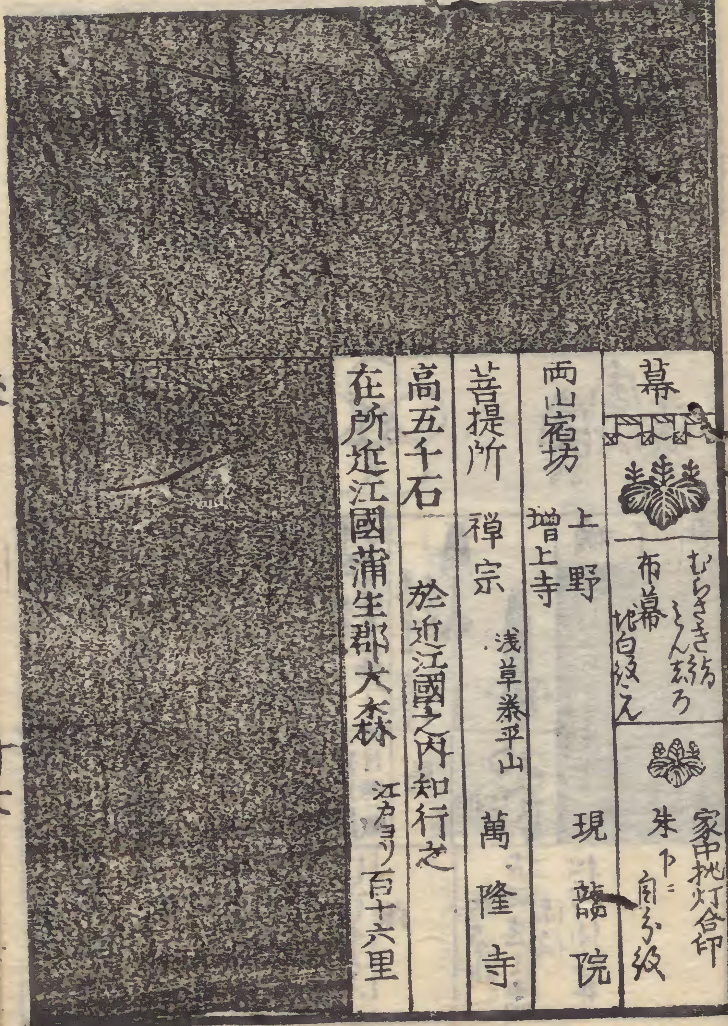 幕
むらさき絹
もんしろ
布幕
地白紋こん
家中挑灯合印
朱下ニ
自分紋
両山宿坊
上野
現龍院
増上寺
菩提所 禅宗 浅草泰平山 萬隆寺
高五千石 於近江國之内知行之
在所近江國蒲生郡大森 江戸ヨリ百十六里